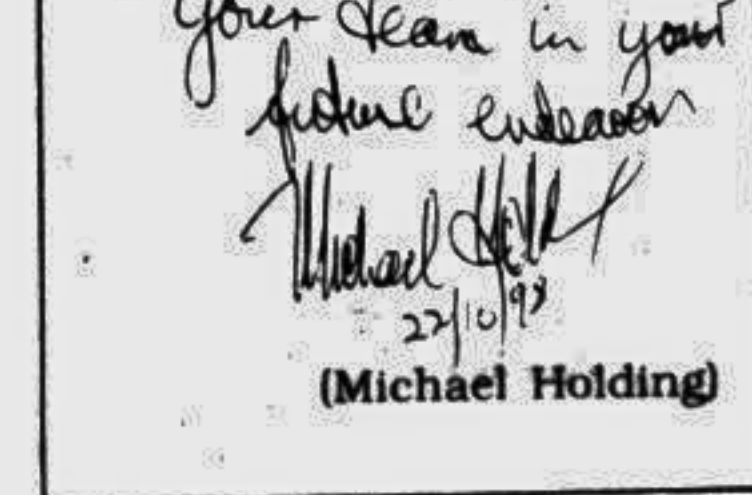 your team in your
future endeavor
Michael Holding
22/10/98
(Michael Holding)